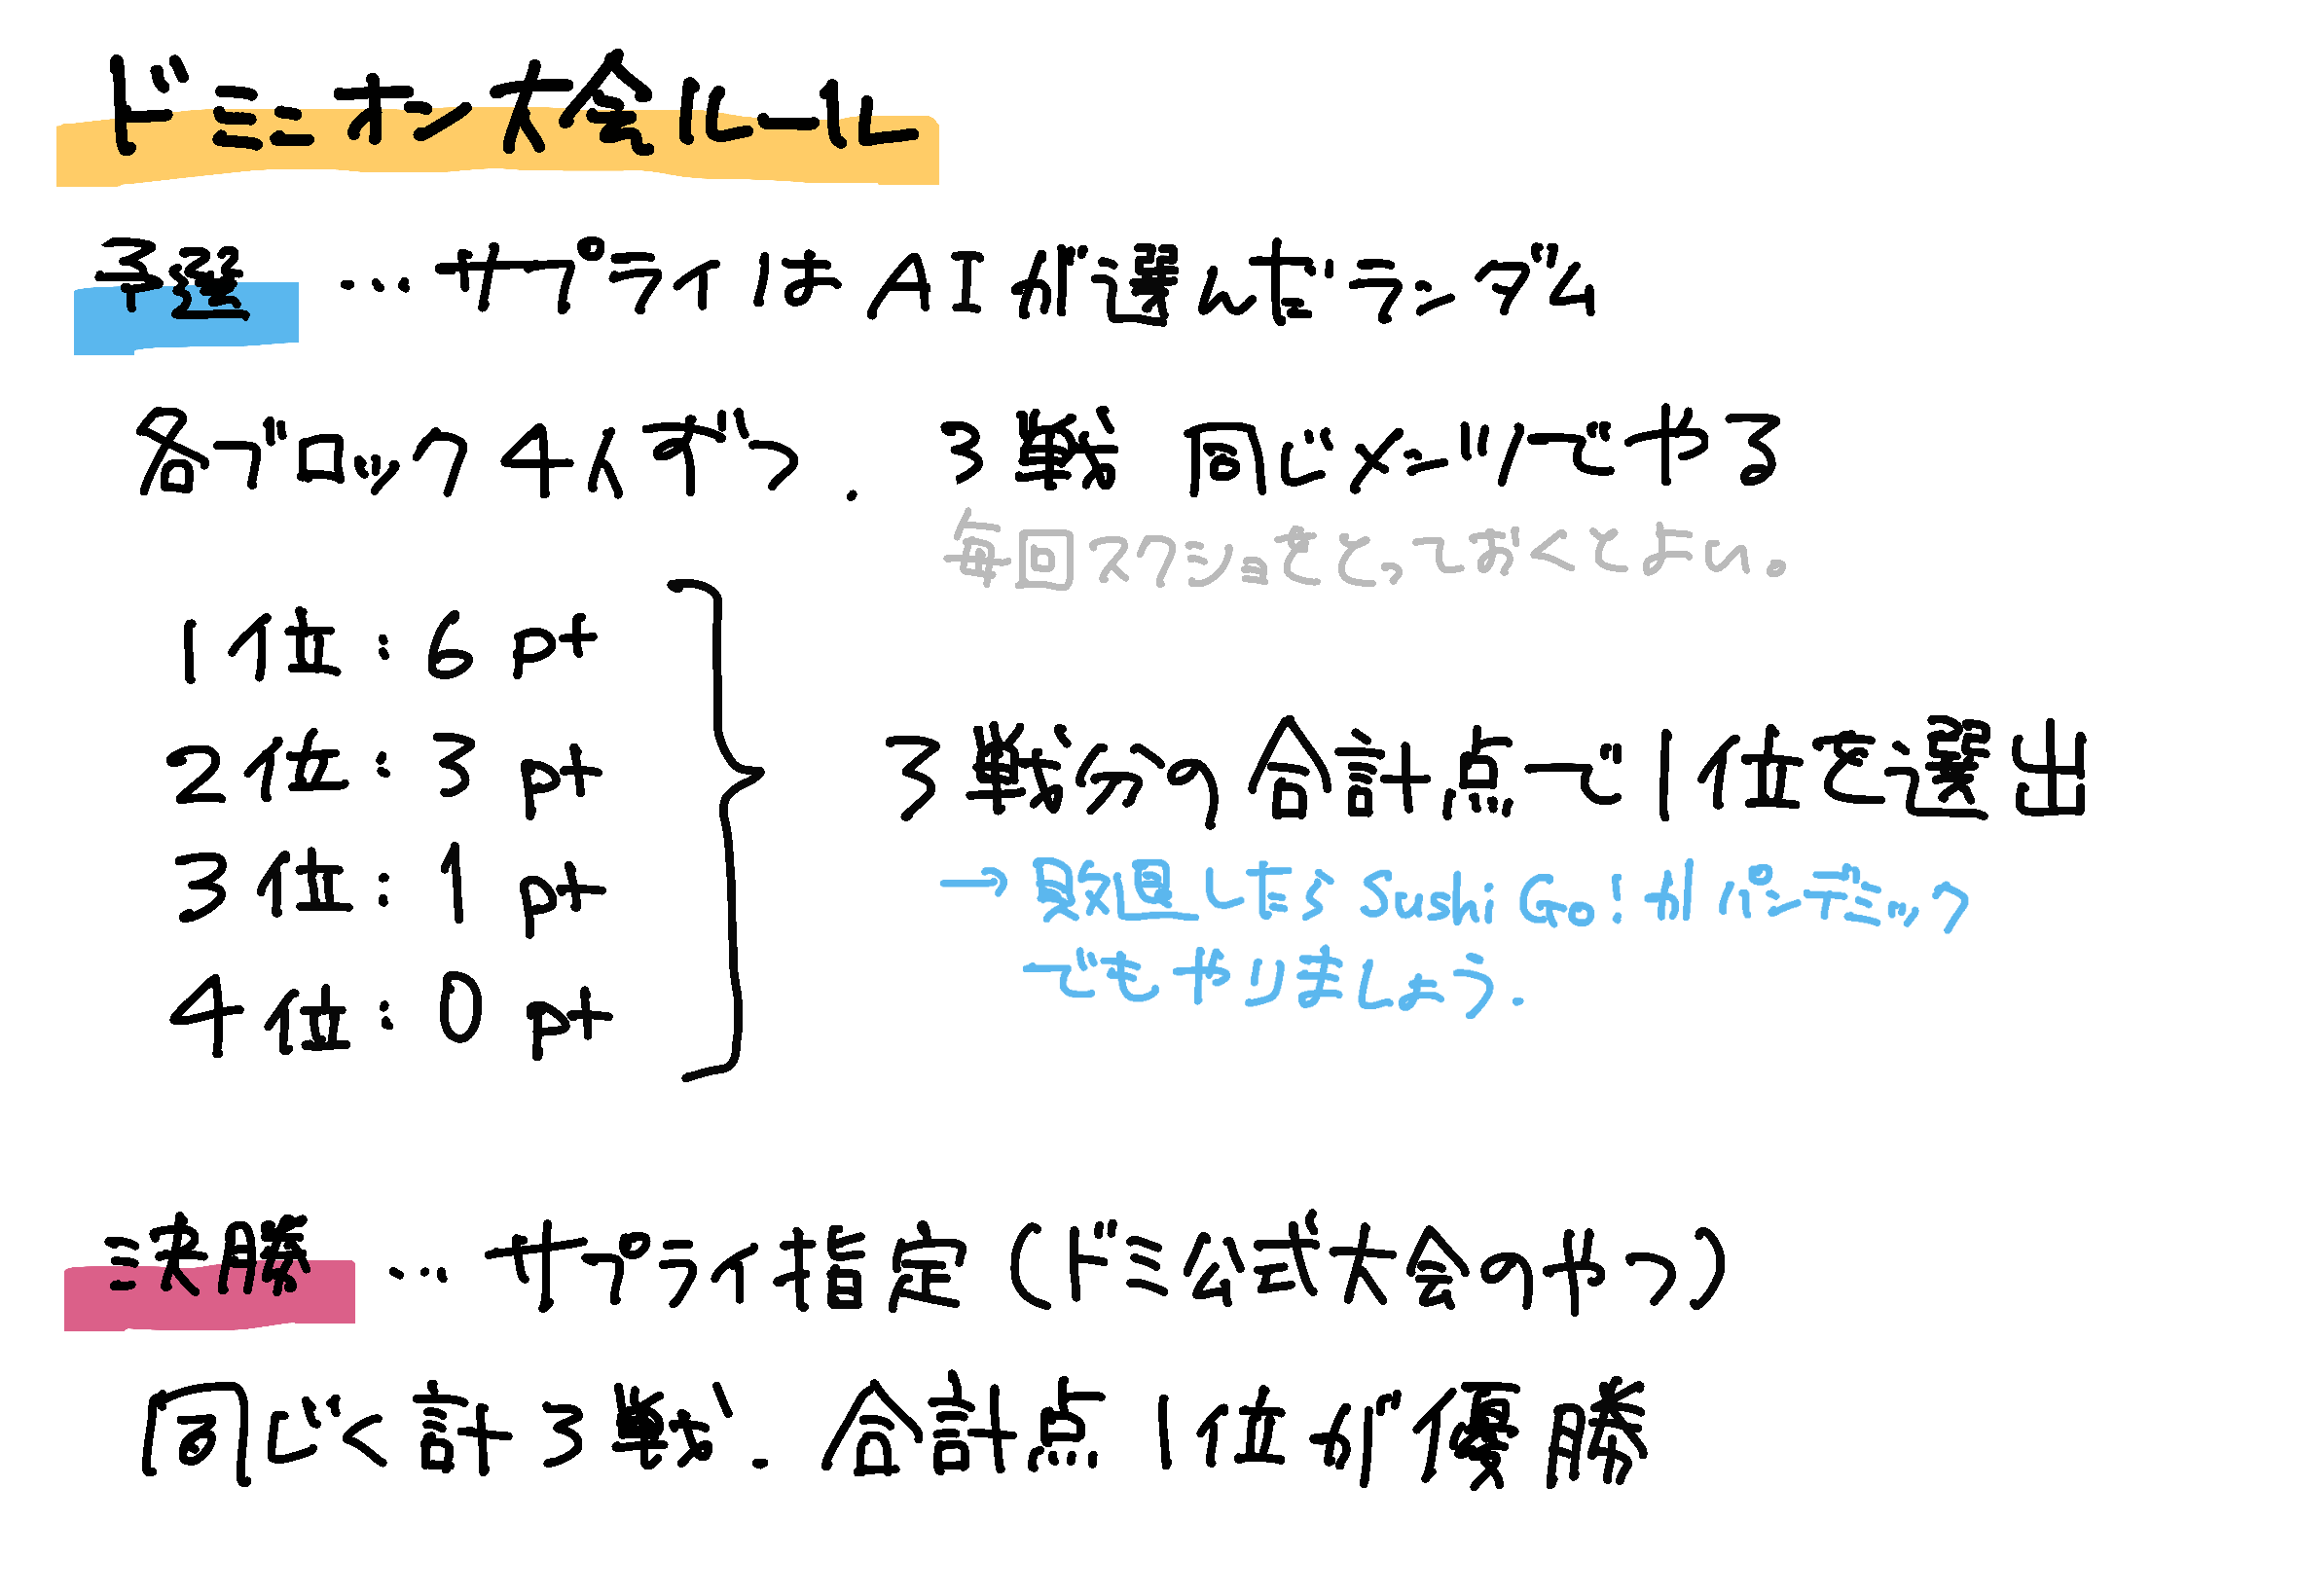 ドミニオン大会ルール
予選 … サプライは AIが選んだランダム
各ブロック4人ずつ. 3戦 同じメンツでやる
毎回スクショをとっておくとよい。
1位: 6 pt
2位: 3 pt
3位: 1 pt
4位: 0 pt
3戦分の合計点で1位を選出
→ 敗退したら Sushi Go! か パンデミック
でもやりましょう.
決勝 … サプライ指定 (ドミ公式大会のやつ)
同じく計3戦. 合計点 1位が優勝